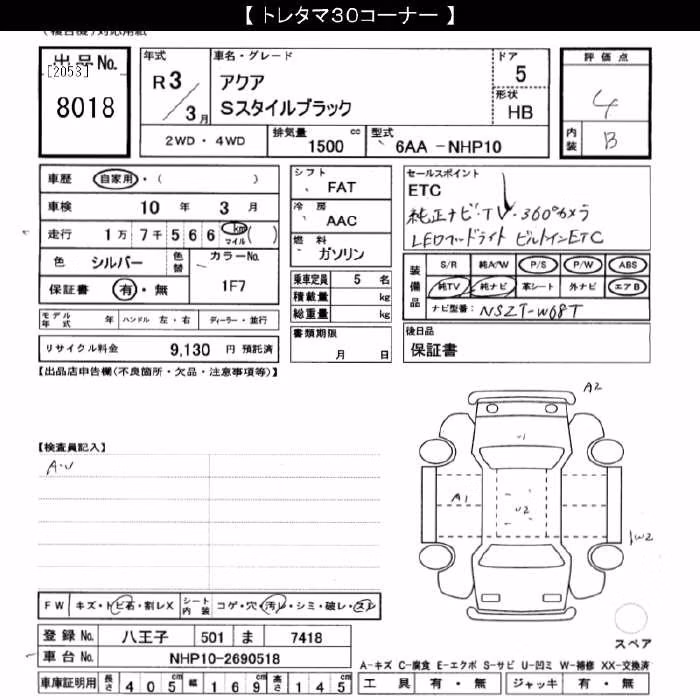 【 トレタマ30コーナー 】
出品No.
[2053]
8018
年式
R3
3月
車名・グレード
アクア
Sスタイルブラック
ドア
5
形状
HB
2WD・4WD
排気量
1500 cc
型式
6AA -NHP10
評価点
4
内装
B
車歴 自家用・( )
車検 10年 3月
走行 1万7千566 km マイル( )
色 シルバー 色替
カラーNo.
1F7
保証書 有・無
モデル年式 年 ハンドル 左・右 ディーラー・並行
リサイクル料金 9,130 円 預託済
シフト
FAT
冷房
AAC
燃料
ガソリン
乗車定員 5 名
積載量 kg
総重量 kg
書類期限
月 日
セールスポイント
ETC
純正ナビ・TV・360°カメラ
LEDヘッドライト ビルトインETC
装備品
S/R 純A/W P/S P/W ABS
純TV 純ナビ 革シート 外ナビ エアB
ナビ型番: NSZT-W68T
後日品
保証書
【出品店申告欄(不良箇所・欠品・注意事項等)】
【検査員記入】
A・U
A2
U1
A1
U2
W2
スペア
FW キズ・トビ石・割レX シート内装 コゲ・穴・汚レ・シミ・破レ・スレ
登録No. 八王子 501 ま 7418
車台No. NHP10-2690518
車庫証明用 長さ 405cm 幅 169cm 高さ 145cm
A-キズ C-腐食 E-エクボ S-サビ U-凹ミ W-補修 XX-交換済
工具 有・無 ジャッキ 有・無